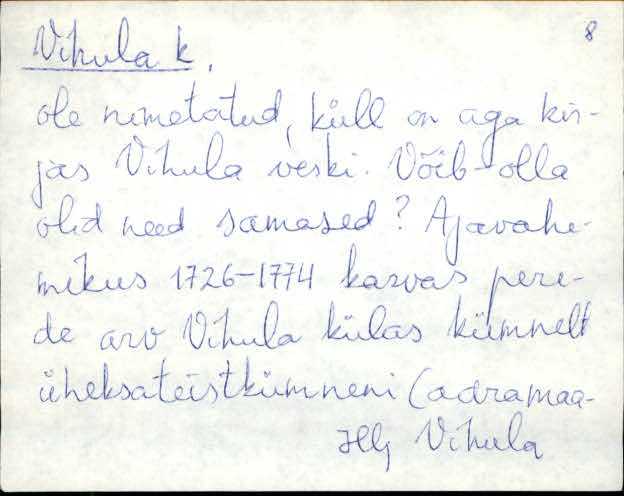 8
Vihula k.
ole nimetatud, küll on aga kir-
jas Vihula veski. Võib-olla
olid need samased? Ajavahe-
mikus 1726-1774 kasvas pere-
de arv Vihula külas kümnelt
üheksateistkümneni (adramaa-
Vihula